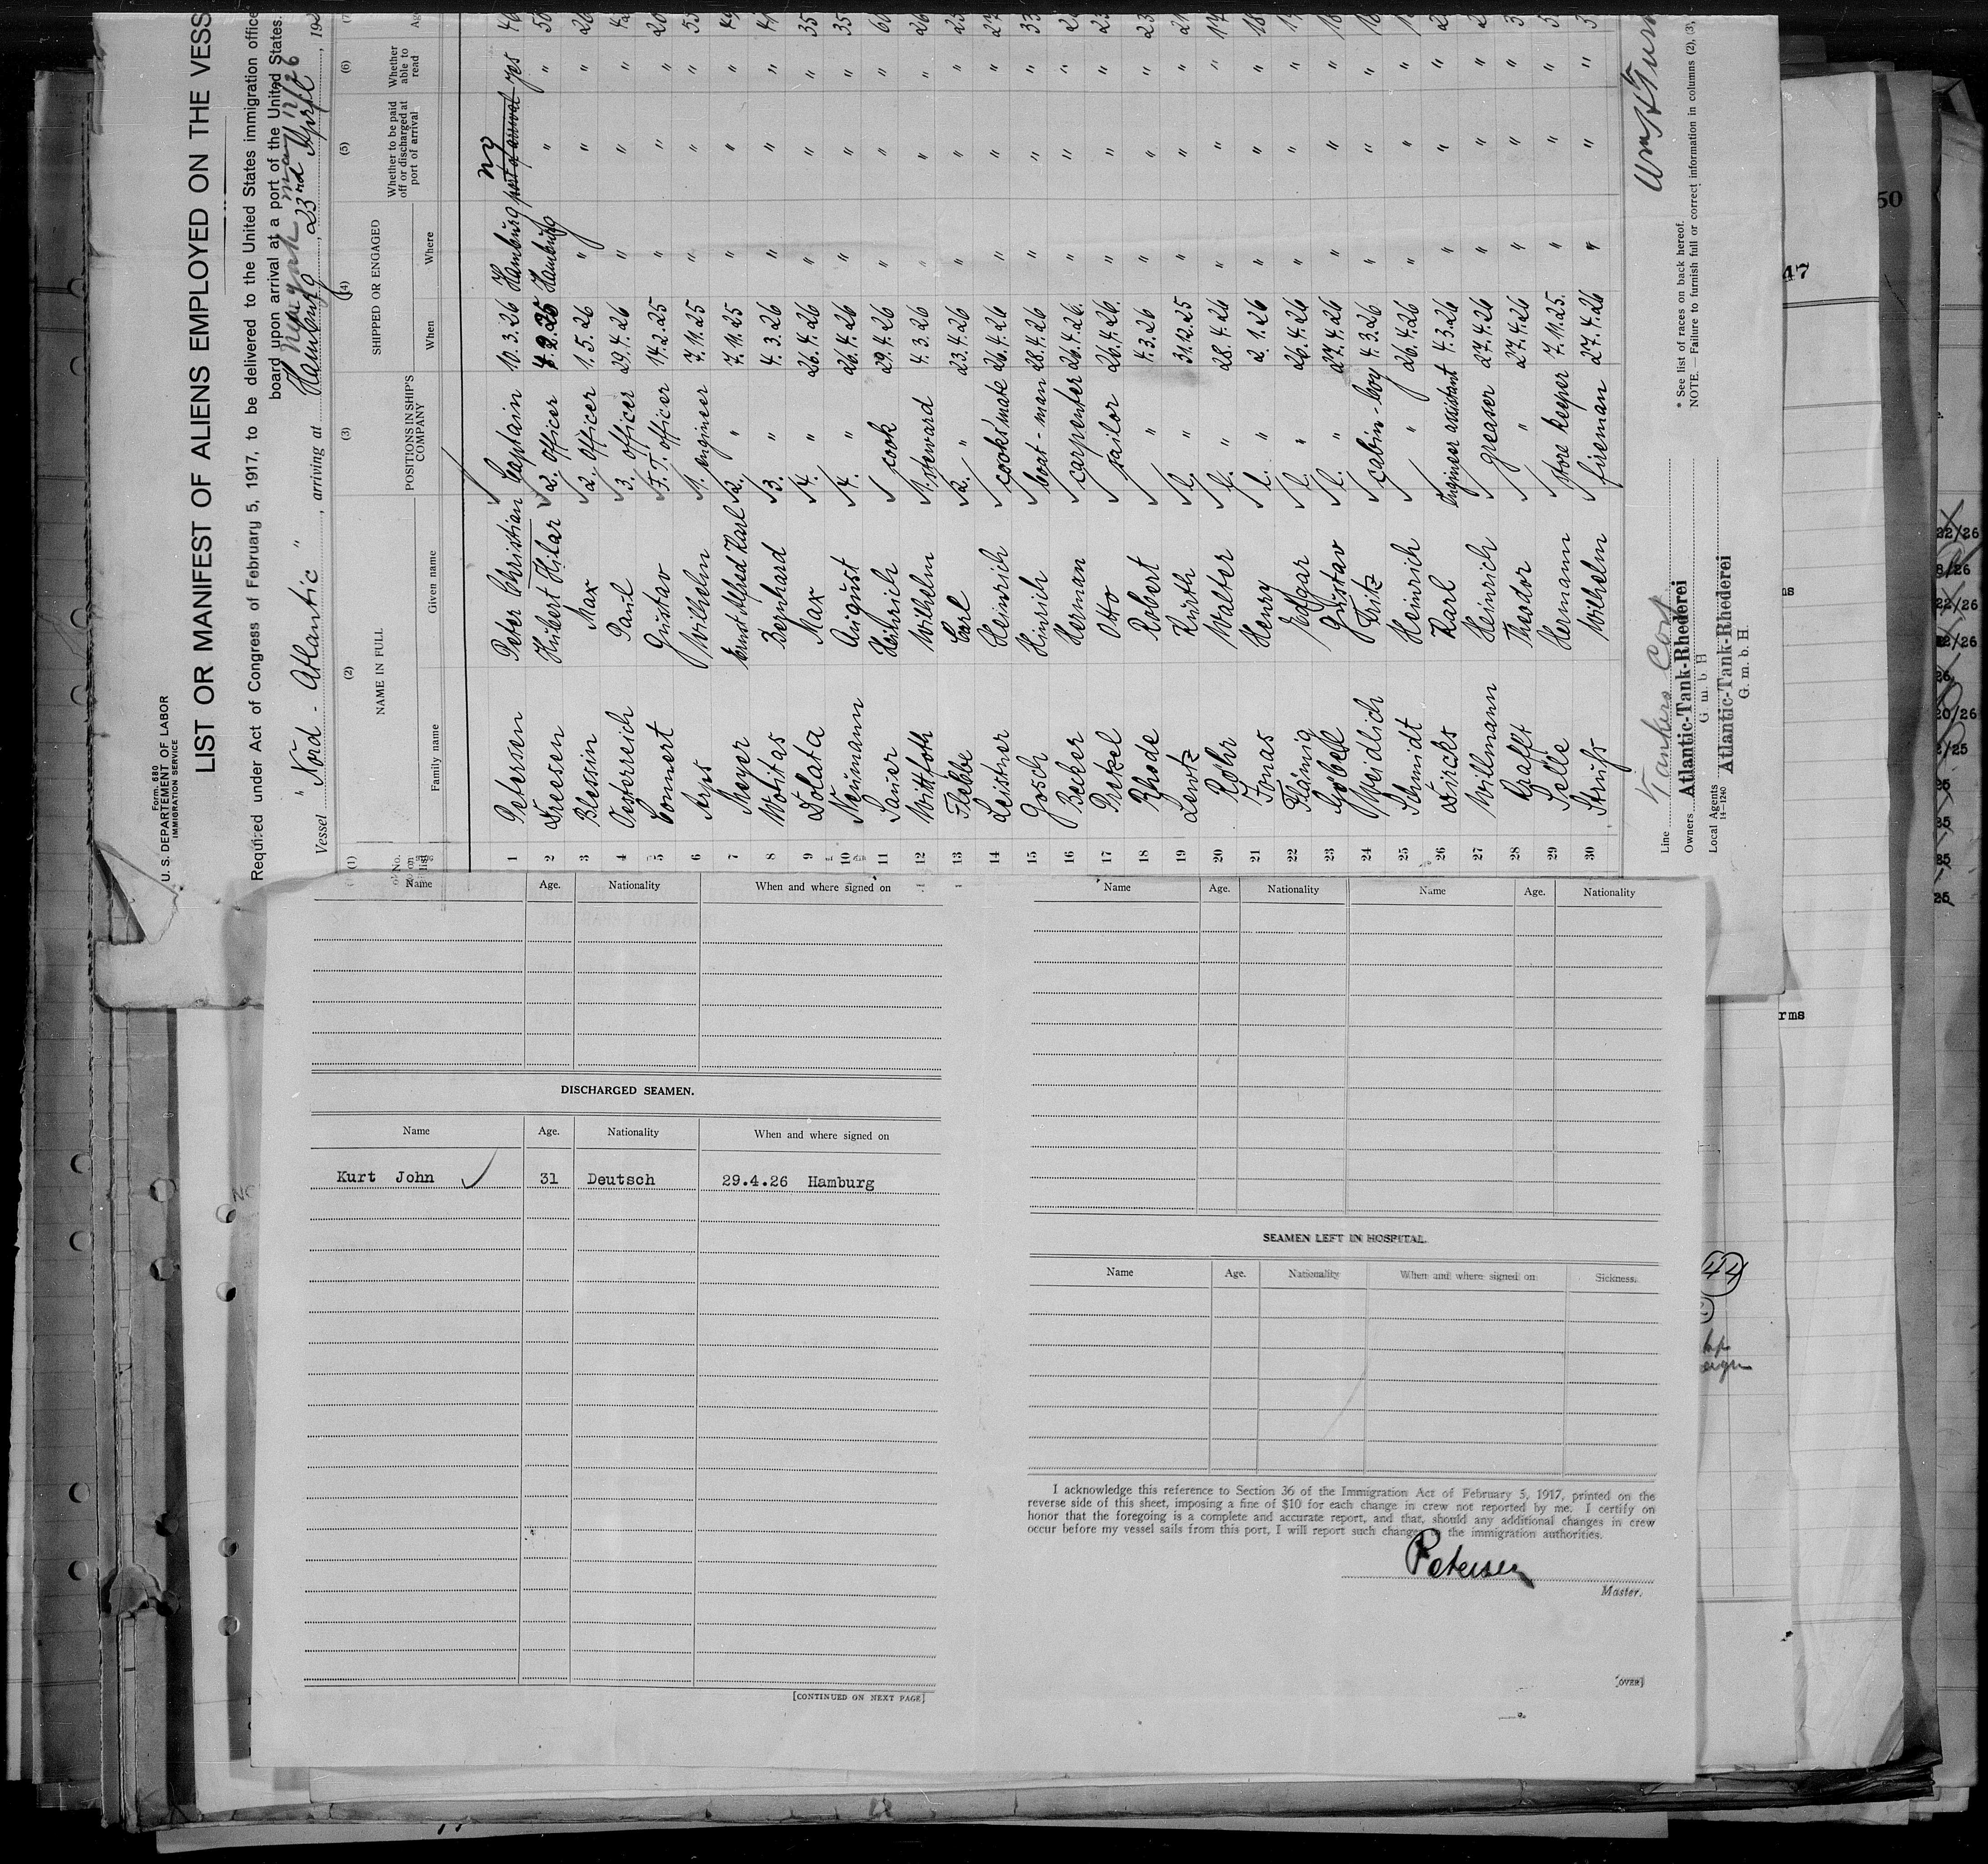 Form 680
U. S. DEPARTEMENT OF LABOR
IMMIGRATION SERVICE
LIST OR MANIFEST OF ALIENS EMPLOYED ON THE VESS
Required under Act of Congress of February 5, 1917, to be delivered to the United States immigration office
board upon arrival at a port of the United States.
Vessel " Nord - Atlantic " , arriving at Hamburg , 23rd April , 192
(1) (2) (3) (4) (5) (6) (7)
No. on list NAME IN FULL POSITIONS IN SHIP'S COMPANY SHIPPED OR ENGAGED Whether to be paid off or discharged at port of arrival Whether able to read
Family name Given name When Where
1 Petersen Peter Christian Captain 10.3.26 Hamburg no yes
2 Dreesen Hubert Hilar 2. Officer 4.2.25 Hamburg " "
3 Blessin Max 2. Officer 1.5.26 " " "
4 Oesterreich Paul 3. Officer 29.4.26 " " "
5 Gustav F.T. officer 14.2.25 " " "
6 Arps Wilhelm 1. engineer 7.11.25 " " " 55
7 Meyer Ernst Alfred Karl 2. " 7.11.25 " " "
8 Wotitas Bernhard 3. " 4.3.26 " " "
9 Dolata Max 4. " 26.4.26 " " " 35
10 Neumann August 4. " 26.4.26 " " " 35
11 Sauer Heinrich cook 29.4.26 " " "
12 Wittfoth Wilhelm 1. steward 4.3.26 " " " 26
13 Flebbe Carl 2. " 23.4.26 " " "
14 Leistner Heinrich cooksmate 26.4.26 " " "
15 Gosch Hinrich boat-man 28.4.26 " " " 33
16 Becker Herman carpenter 26.4.26. " " "
17 Pretzel Otto sailor 26.4.26. " " "
18 Rhode Robert " 4.3.26 " " " 23
19 Lentz Kurth l. " 31.12.25 " " "
20 Rohr Walter l. " 28.4.26 " " " 17
21 Jonas Henry l. " 2.1.26 " " " 18
22 Fläming Edgar l. " 26.4.26 " " "
23 Göbell Gustav l. " 27.4.26 " " " 18
24 Weidlich Fritz cabin-boy 4.3.26 " " "
25 Schmidt Heinrich " 26.4.26 " " "
26 Dircks Karl Engineer assistant 4.3.26 " " "
27 Willmann Heinrich greaser 27.4.26 " " "
28 Raafft Theodor " 27.4.26 " " "
29 Selle Hermann store keeper 7.11.25. " " "
30 Strufs Wilhelm fireman 27.4.26 " " "
Line Tankers Corp
Owners Atlantic-Tank-Rhederei
G. m. b H
Local Agents Atlantic-Tank-Rhederei
14-1240
G. m. b. H.
* See list of races on back hereof.
NOTE.—Failure to furnish full or correct information in columns (2), (3),
50
47
22/26
8/26
22/26
22/26
26
20/26
2/25
25
25
25
25
rms
44
Name Age. Nationality When and where signed on
DISCHARGED SEAMEN.
Name Age. Nationality When and where signed on
Kurt John 31 Deutsch 29.4.26 Hamburg
[CONTINUED ON NEXT PAGE]
Name Age. Nationality Name Age. Nationality
SEAMEN LEFT IN HOSPITAL.
Name Age. Nationality When and where signed on Sickness.
I acknowledge this reference to Section 36 of the Immigration Act of February 5, 1917, printed on the
reverse side of this sheet, imposing a fine of $10 for each change in crew not reported by me. I certify on
honor that the foregoing is a complete and accurate report, and that, should any additional changes in crew
occur before my vessel sails from this port, I will report such changes to the immigration authorities.
Petersen
Master.
[OVER]